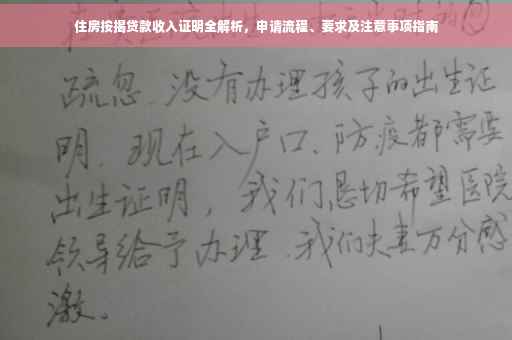 住房按揭贷款收入证明全解析，申请流程、要求及注意事项指南
疏忽、没有办理孩子的出生证
明、现在入户口、防疫都需要
出生证明，我们恳切希望医院
领导给予办理、我们夫妻万分感
激。